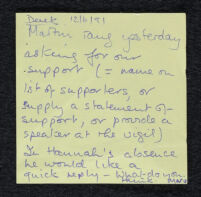 Derek 12/6/51
Martin rang yesterday
asking for our
support (= name on
list of supporters, or
supply a statement of
support, or provide a
speaker at the vigil)
In Hannah's absence
he would like a
quick reply - What do you
think.